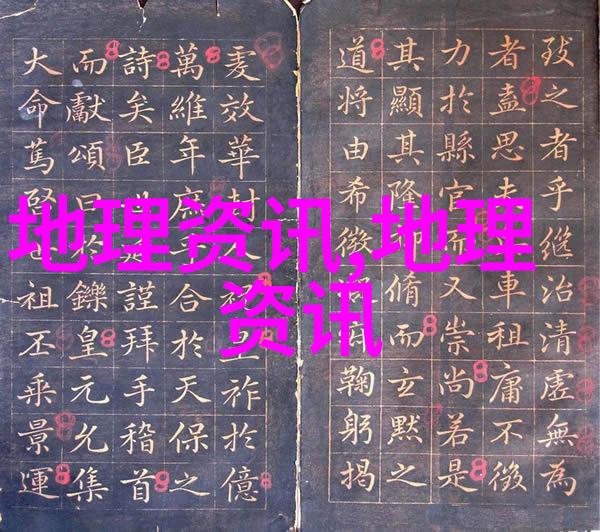 地理资讯,地理
资讯
之者乎繼治清虛無為
者盍思車租庸不徵
力於縣官而又崇尚若是
其顯其隆脩而玄默之
道將由希微鞠躬揭
效華封祝祚於億
萬維年庶合於天保之
詩矣臣謹拜手稽首
而獻頌曰於鑠皇元允集
大命篤祖丕乘景運